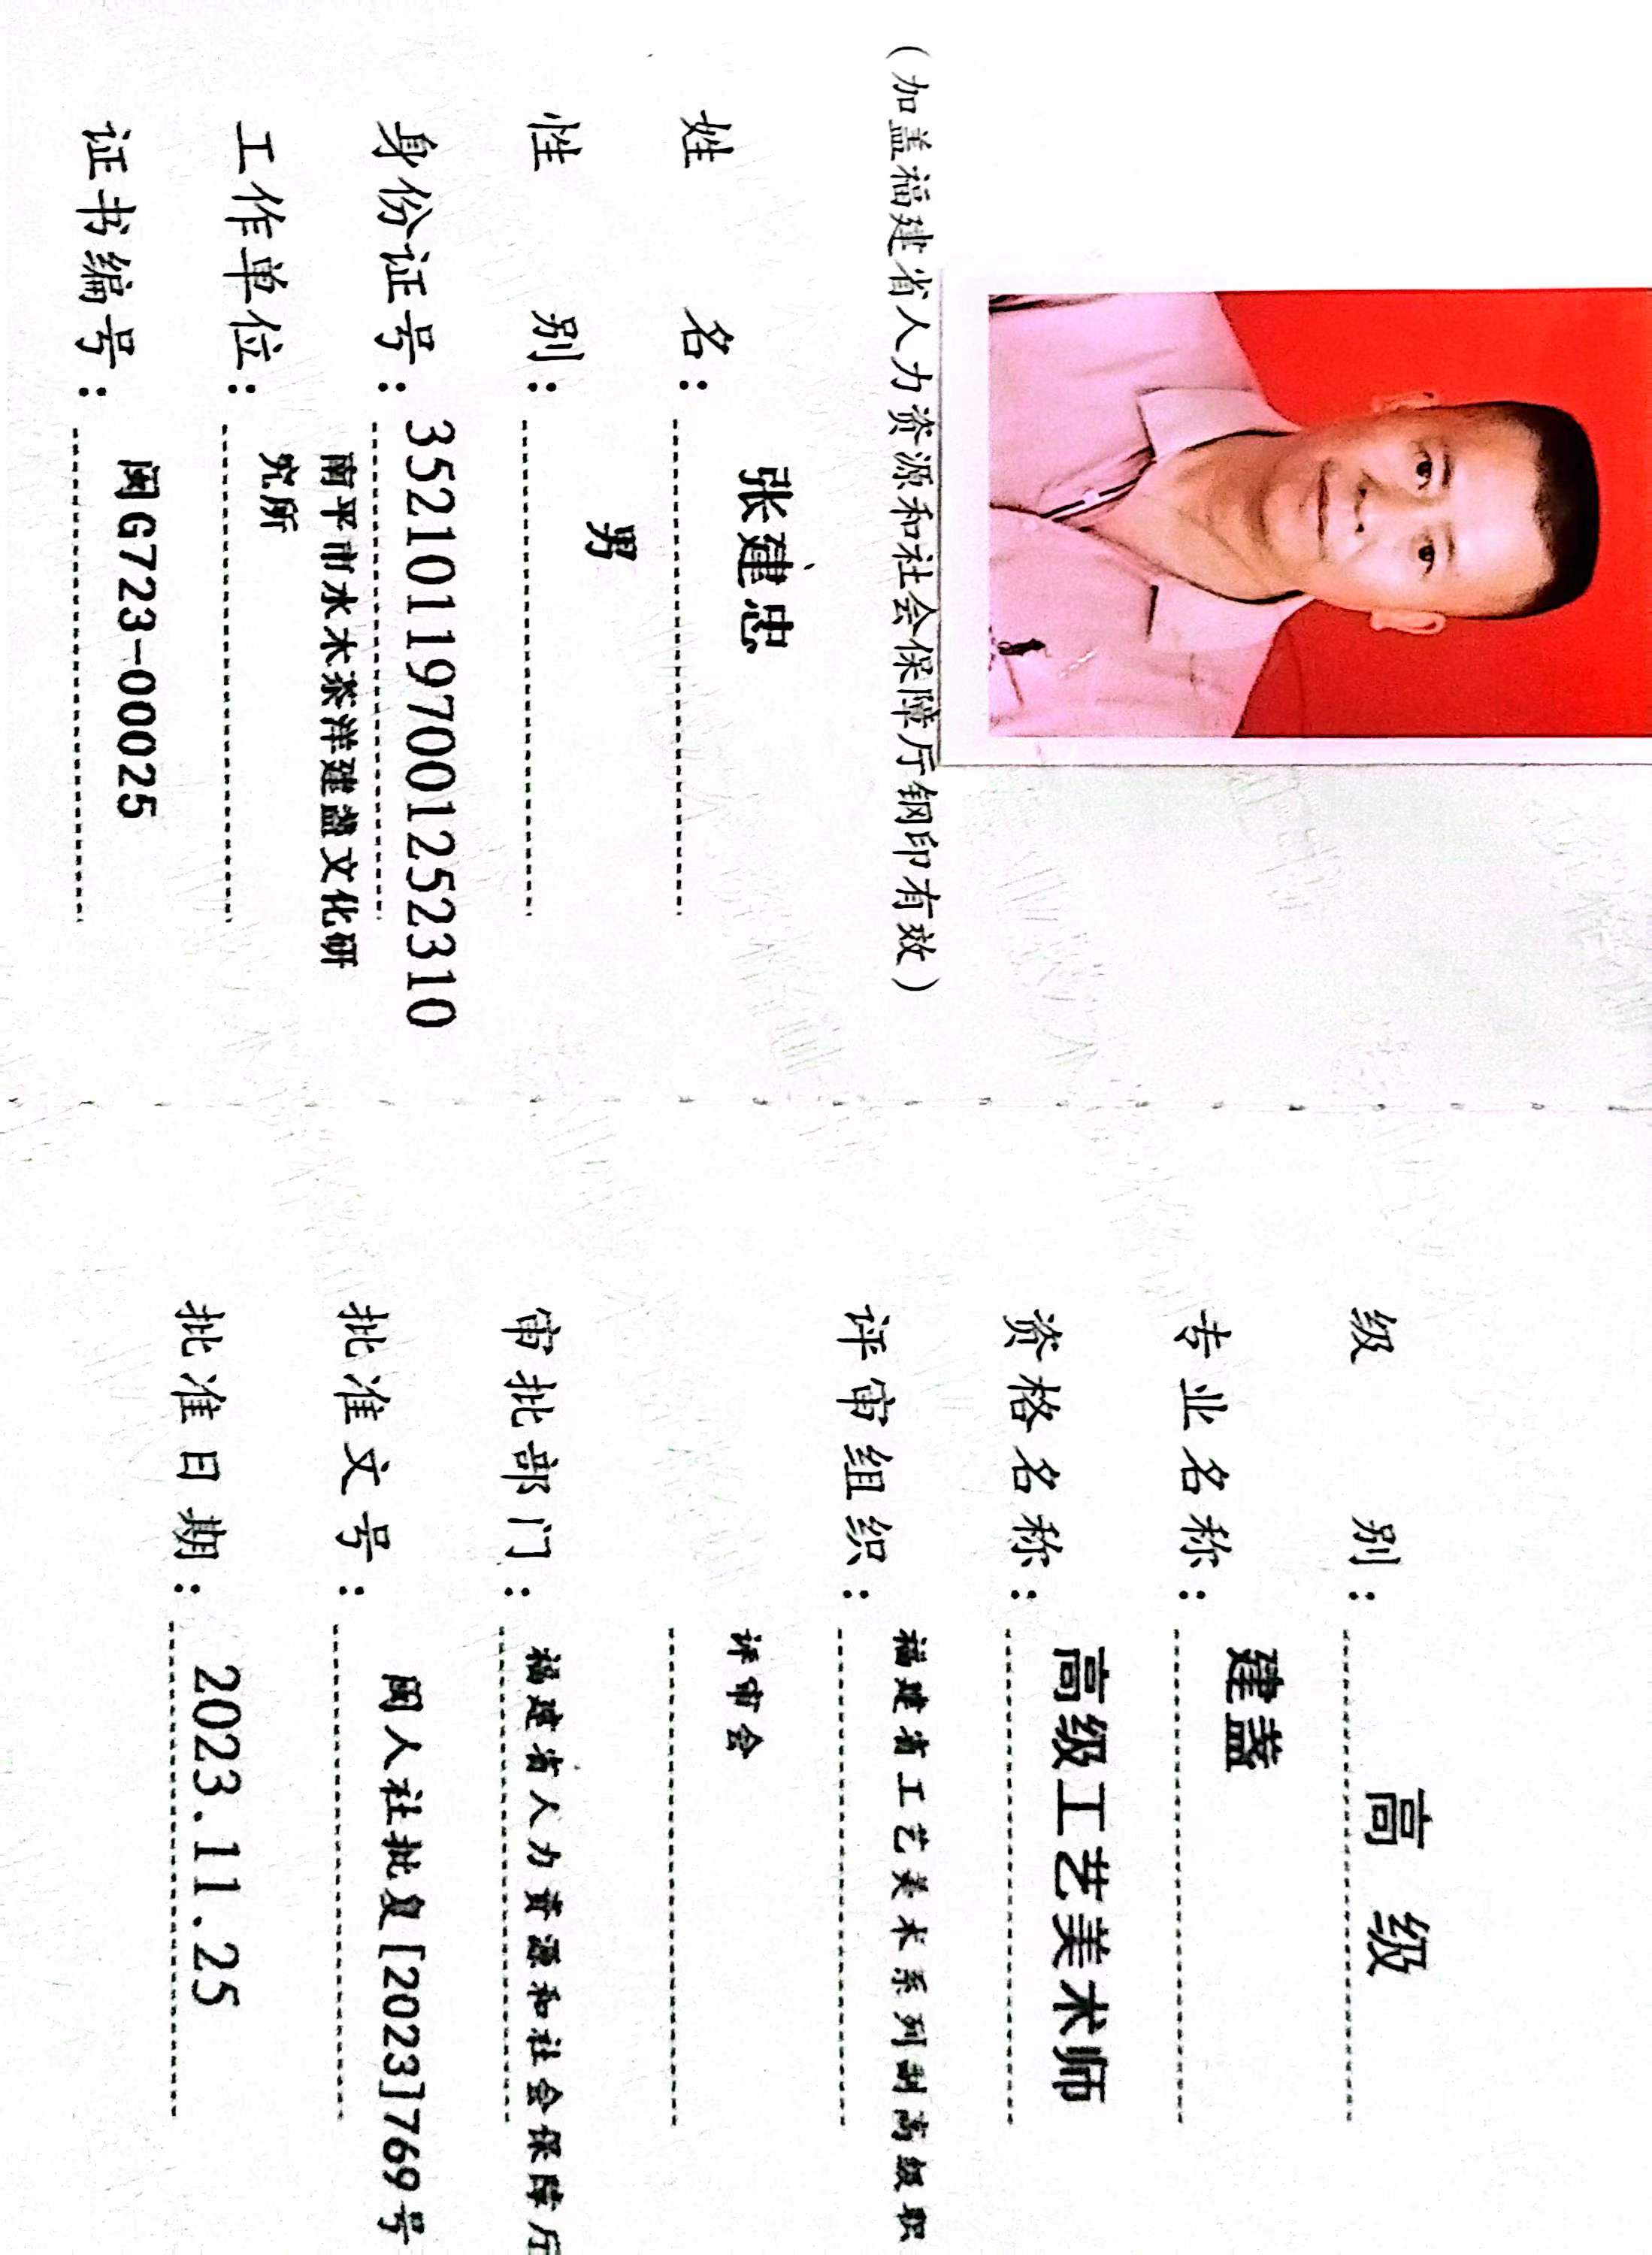 (加盖福建省人力资源和社会保障厅钢印有效)
姓名: 张建忠
性别: 男
身份证号: 352101197001252310
工作单位: 南平市水木茶洋建盏文化研
究所
证书编号: 闽G723-00025
级别: 高级
专业名称: 建盏
资格名称: 高级工艺美术师
评审组织: 福建省工艺美术系列副高级职
评审会
审批部门: 福建省人力资源和社会保障厅
批准文号: 闽人社批复[2023]769号
批准日期: 2023.11.25